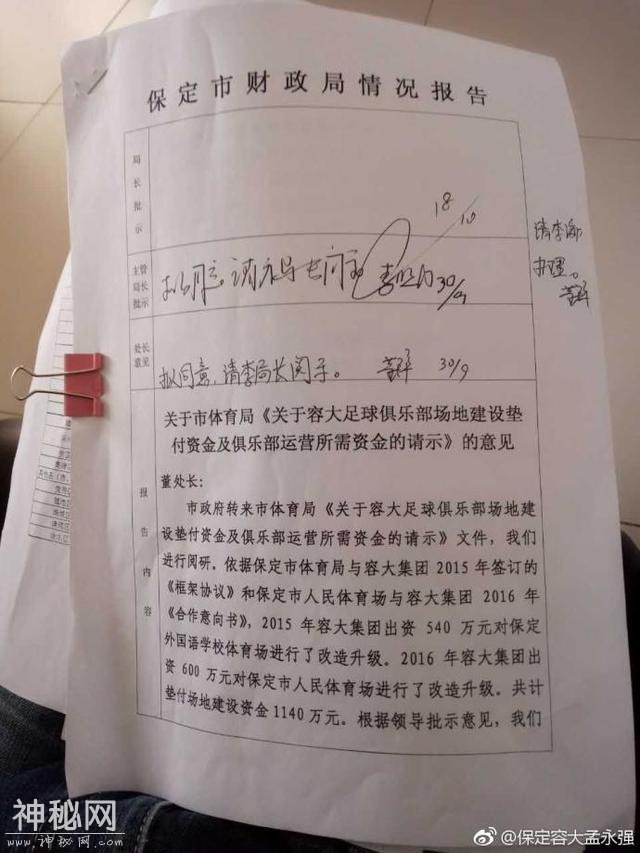 保定市财政局情况报告
局长批示
18/10
主管局长批示
30/9
请李
办理。
处长意见
拟同意,请李局长阅示。
30/9
关于市体育局《关于容大足球俱乐部场地建设垫
付资金及俱乐部运营所需资金的请示》的意见
报告内容
董处长:
市政府转来市体育局《关于容大足球俱乐部场地建
设垫付资金及俱乐部运营所需资金的请示》文件,我们
进行阅研。依据保定市体育局与容大集团2015年签订的
《框架协议》和保定市人民体育场与容大集团2016年
《合作意向书》,2015年容大集团出资540万元对保定
外国语学校体育场进行了改造升级。2016年容大集团出
资600万元对保定市人民体育场进行了改造升级。共计
垫付场地建设资金1140万元。根据领导批示意见,我们
神秘网
www.神秘网.com
@保定容大孟永强